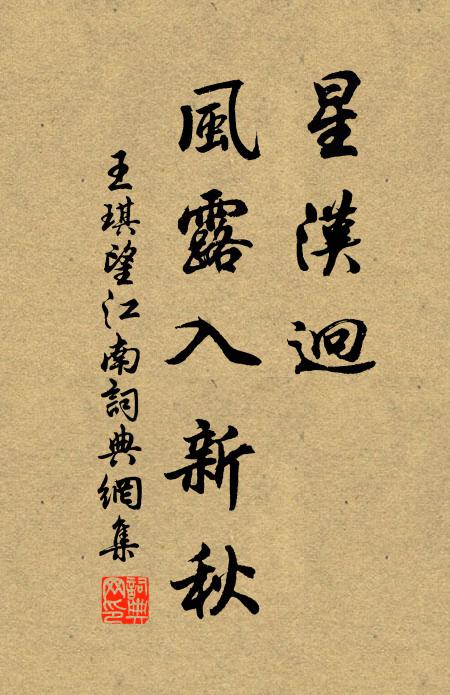 星漢迥
風露入新秋
王琪望江南詞典網集
詞典
网印